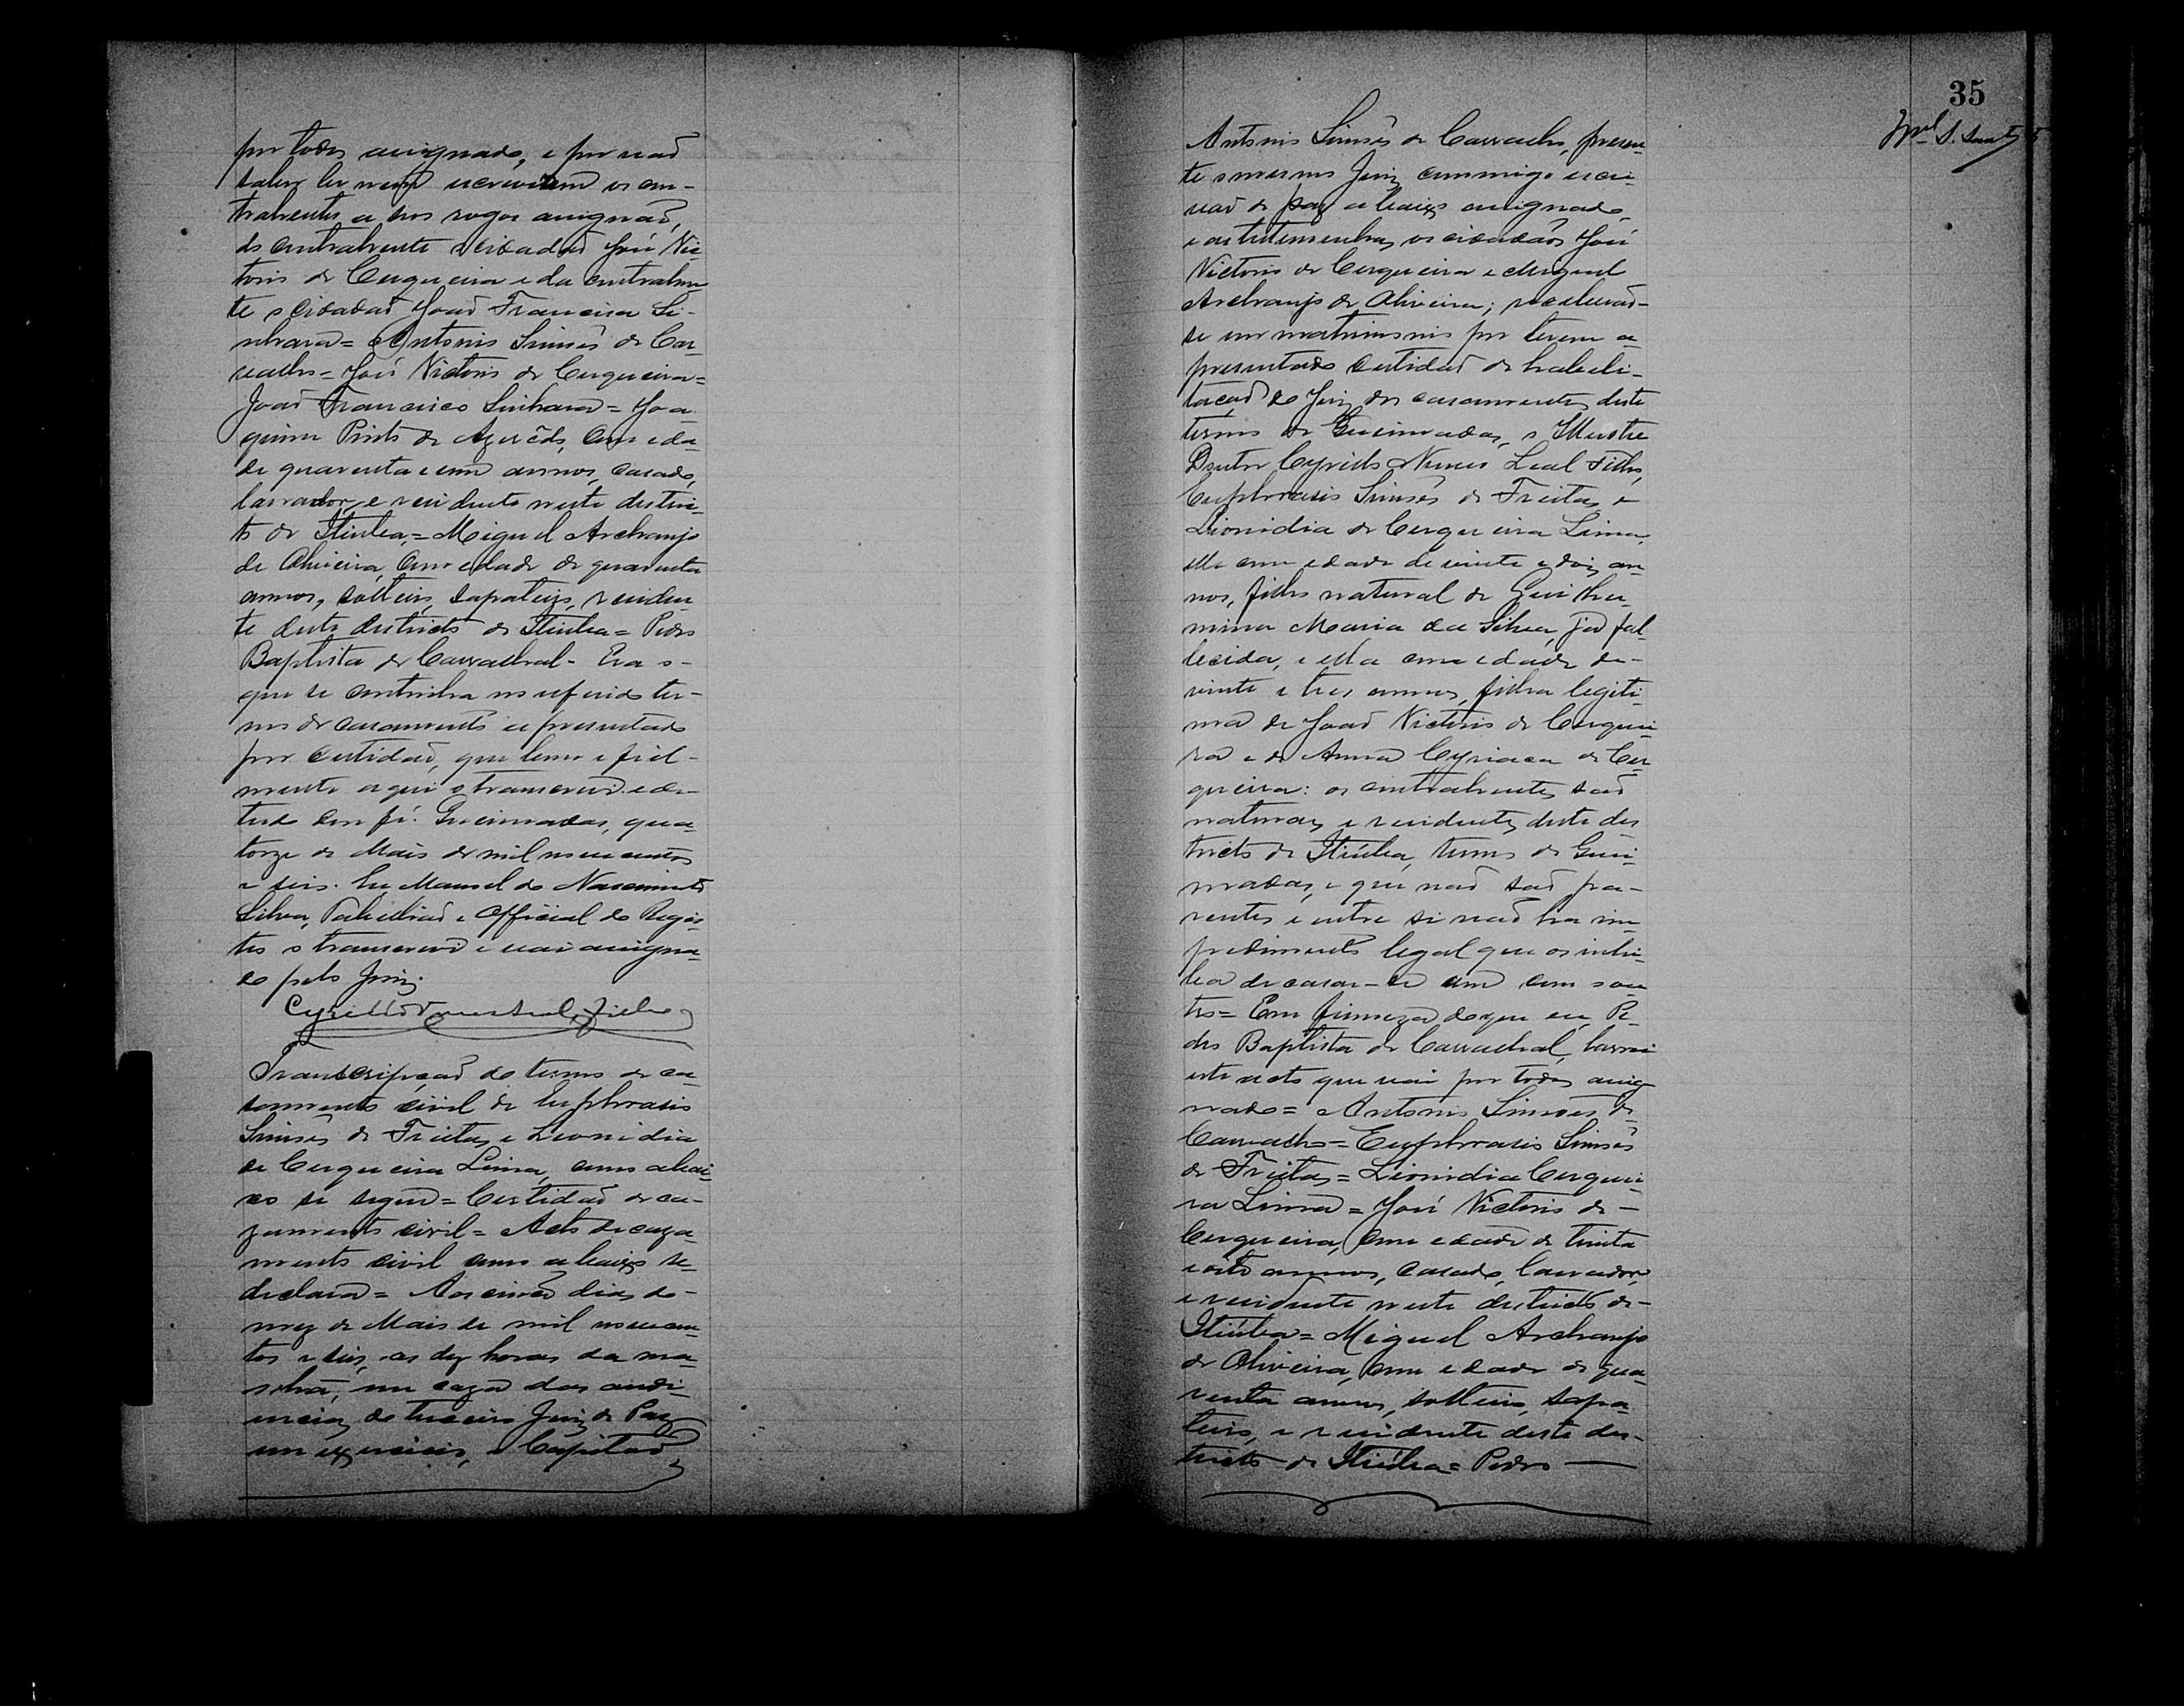 por todos assignado, e por naõ
saber ler nem escreverem os con-
trahentes a seos rogos assignaõ,
do contrahente o cidadaõ José Vic-
torio de Cerqueira e da contrahen-
te o cidadaõ Joaõ Francisco Si-
nhara = Antonio Simões de Car-
valho = José Victorio de Cerqueira =
Joaõ Francisco Sinhara = Joa-
quim Pinto de Azevêdo, com eda-
de quarenta e um annos, casado,
lavrador, e residente neste distric-
to de Itiuba, = Miguel Archanjo
de Oliveira, com edade de quarenta
annos, solteiro, sapateiro, residen-
te deste districto de Itiuba = Pedro
Baptista de Carvalhal. Era o -
que se continha no referido ter-
mo de casamento apresentado
por certidaõ, que bem e fiel-
mente aqui o transcrevi e de
tudo dou fé. Queimadas, qua-
torze de Maio de mil novecentos
e seis. Eu, Manoel do Nascimento
Silva, Tabelliaõ e Official do Regis-
tro o transcrevi e vai assigna-
do pelo Juiz.
Cyrillo Nunes Leal Filho
Transcripçaõ do termo de ca-
samento civil de Euphrasio
Simões de Freitas e Leonidia
de Cerqueira Lima, como abai-
xo se segue = Certidaõ de ca-
zamento civil = Acto de caza-
mento civil como abaixo se
declara = Aos cinco dias do -
mez de Maio de mil novecen-
tos e seis, as dez horas da ma-
nhã, em caza das audi-
encias do terceiro Juiz de Paz
em exercicio, o Capitaõ
35
Antonio Simões de Carvalho, presen-
te o mesmo Juiz commigo escri-
vaõ de paz abaixo assignado,
e as testemunhas os cidadãos José
Victorio de Cerqueira e Miguel
Archanjo de Oliveira; receberaõ-
se em matrimonio por terem a-
presentado certidaõ de habili-
taçaõ do Juiz dos casamentos deste
termo de Queimadas, o Illustre
Doutor Cyrillo Nunes Leal Filho,
Euphrasio Simões de Freitas e
Lionidia de Cerqueira Lima,
elle com edade de vinte e dois an-
nos, filho natural de Guilher-
mina Maria da Silva, já fal-
lecida, e ella com edade de -
vinte e tres annos, filha legiti-
ma de Joaõ Victorio de Cerquei-
ra e de Anna Cyriaca de Cer-
queira: os contrahentes saõ
naturaes e residentes deste dis-
tricto de Itiúba, termo de Quei-
madas, e que naõ saõ pa-
rentes e entre si naõ ha im-
pedimento legal que os inhi-
ba de casar-se um com o ou-
tro = Em firmeza do que eu, Pe-
dro Baptista de Carvalhal, lavrei
este acto que vai por todos assig-
nado = Antonio Simões de
Carvalho = Euphrasio Simões
de Freitas = Lionidia Cerquei-
ra Lima = José Victorio de -
Cerqueira, com edade de trinta
e oito annos, casado, lavrador,
e residente neste districto de -
Itiúba = Miguel Archanjo
de Oliveira, com edade de qua-
renta annos, solteiro, sapa-
teiro, e residente deste dis-
tricto de Itiúba = Pedro —